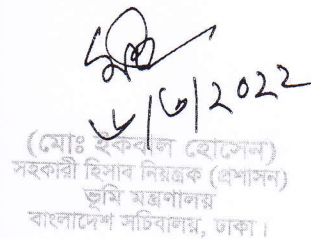 ৬/৩/2022
(মোঃ ইকবাল হোসেন)
সহকারী হিসাব নিয়ন্ত্রক (প্রশাসন)
ভূমি মন্ত্রণালয়
বাংলাদেশ সচিবালয়, ঢাকা।